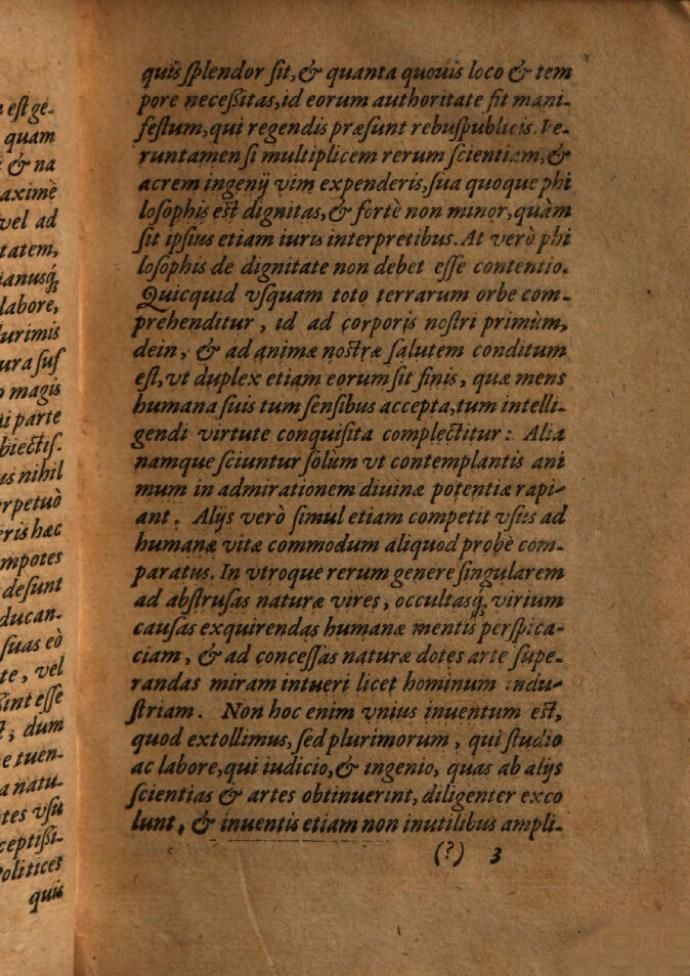 est ge-
quam
& na
aximè
vel ad
tatem,
ianusq́;
labore,
lurimis
ura suf
o magis
ui parte
biectis-
us nihil
rpetuò
eris hæc
mpotes
desunt
ducan-
suas eò
te, vel
sint esse
t, dum
e tuen-
a natu-
tes vsu
ceptißi-
Politices
quis
quis splendor sit, & quanta quouis loco & tem
pore necessitas, id eorum authoritate fit mani-
festum, qui regendis præsunt rebuspublicis. Ve-
runtamen si multiplicem rerum scientiam, &
acrem ingenij vim expenderis, sua quoque phi
losophis est dignitas, & fortè non minor, quàm
sit ipsius etiam iuris interpretibus. At verò phi
losophis de dignitate non debet esse contentio.
Quicquid vsquam toto terrarum orbe com-
prehenditur, id ad corporis nostri primùm,
dein, & ad animæ nostræ salutem conditum
est, vt duplex etiam eorum sit finis, quæ mens
humana suis tum sensibus accepta, tum intelli-
gendi virtute conquisita complectitur: Alia
namque sciuntur solùm vt contemplantis ani
mum in admirationem diuinæ potentiæ rapi-
ant. Alijs verò simul etiam competit vsus ad
humanæ vitæ commodum aliquod probè com-
paratus. In vtroque rerum genere singularem
ad abstrusas naturæ vires, occultasq́; virium
causas exquirendas humanæ mentis perspica-
ciam, & ad concessas naturæ dotes arte supe-
randas miram intueri licet hominum indu-
striam. Non hoc enim vnius inuentum est,
quod extollimus, sed plurimorum, qui studio
ac labore, qui iudicio, & ingenio, quas ab alijs
scientias & artes obtinuerint, diligenter exco
lunt, & inuentis etiam non inutilibus ampli-
(?) 3